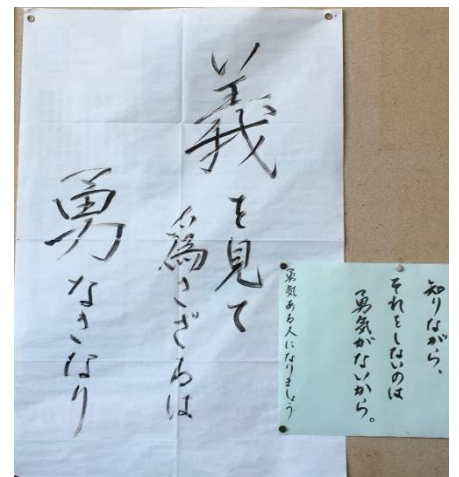 義を見て
為さざるは
勇なきなり
知りながら、
それをしないのは
勇気がないから。
勇気ある人になりましょう